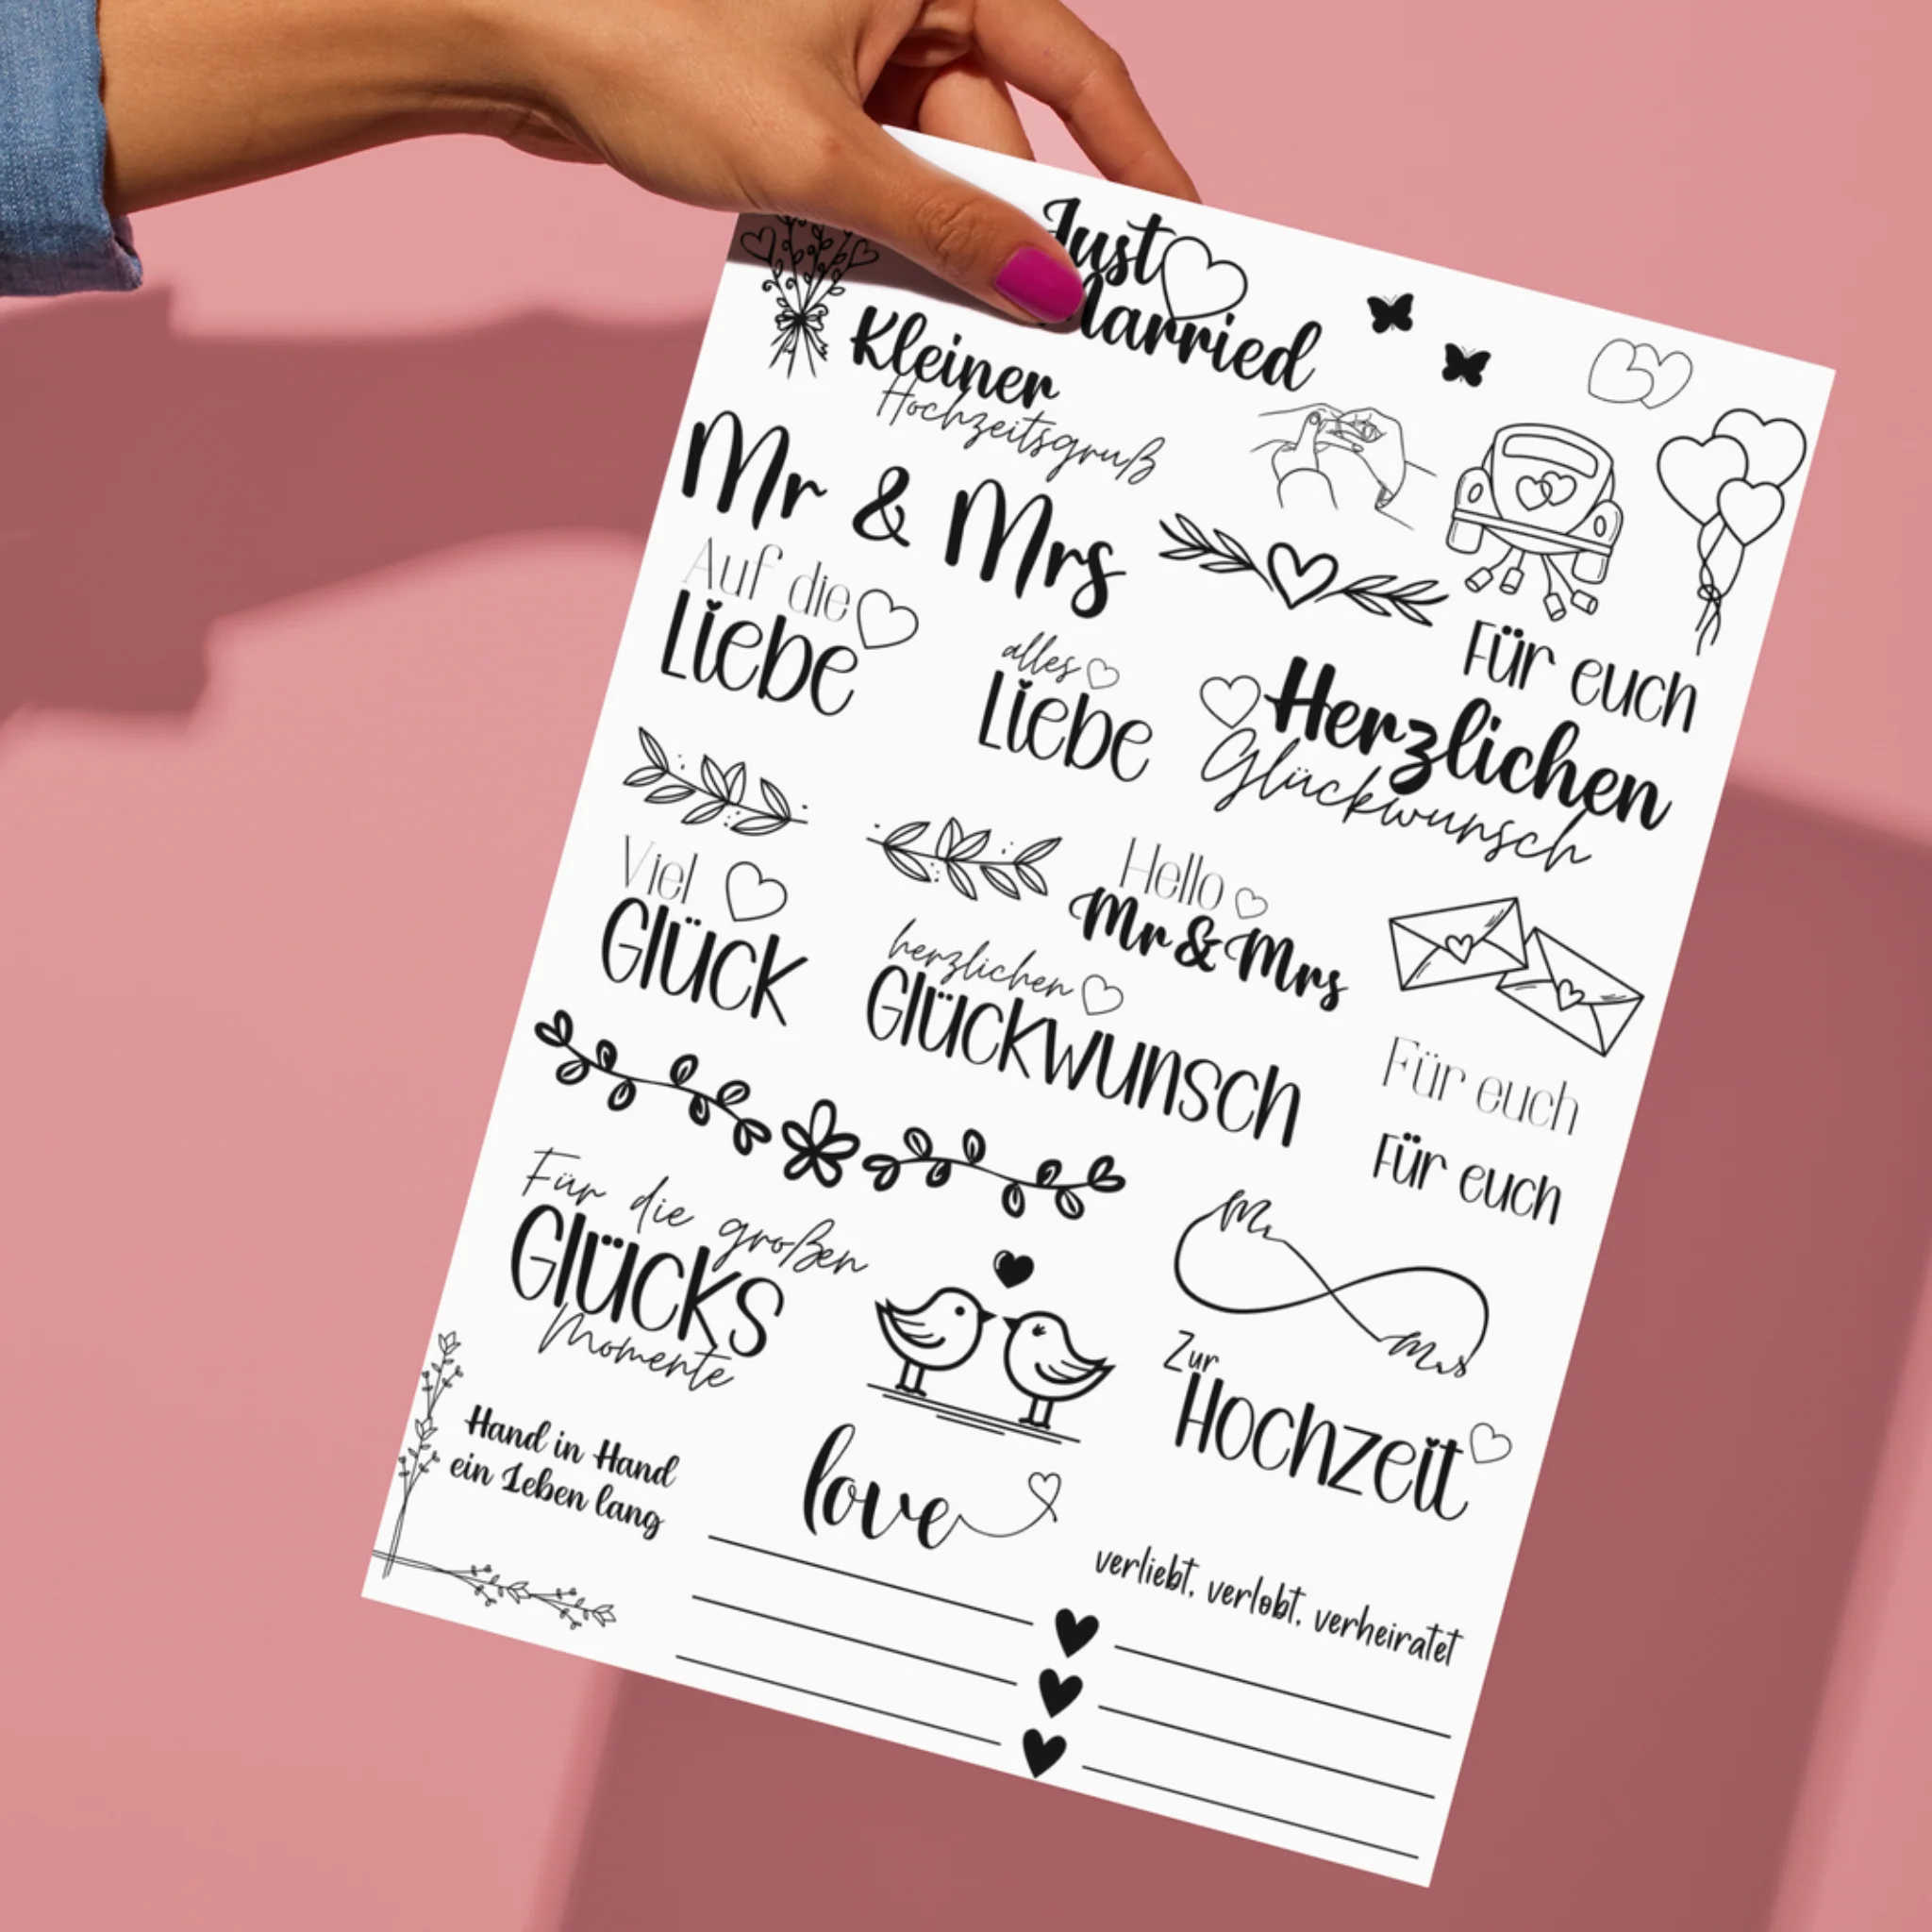 Just
Married
Kleiner
Hochzeitsgruß
Mr & Mrs
Auf die
Liebe
alles
Liebe
Für euch
Herzlichen
Glückwunsch
Viel
Glück
Hello
Mr & Mrs
herzlichen
Glückwunsch
Für euch
Für euch
Für die großen
Glücks
Momente
Mr
Mrs
Zur
Hochzeit
Hand in Hand
ein Leben lang
love
verliebt, verlobt, verheiratet